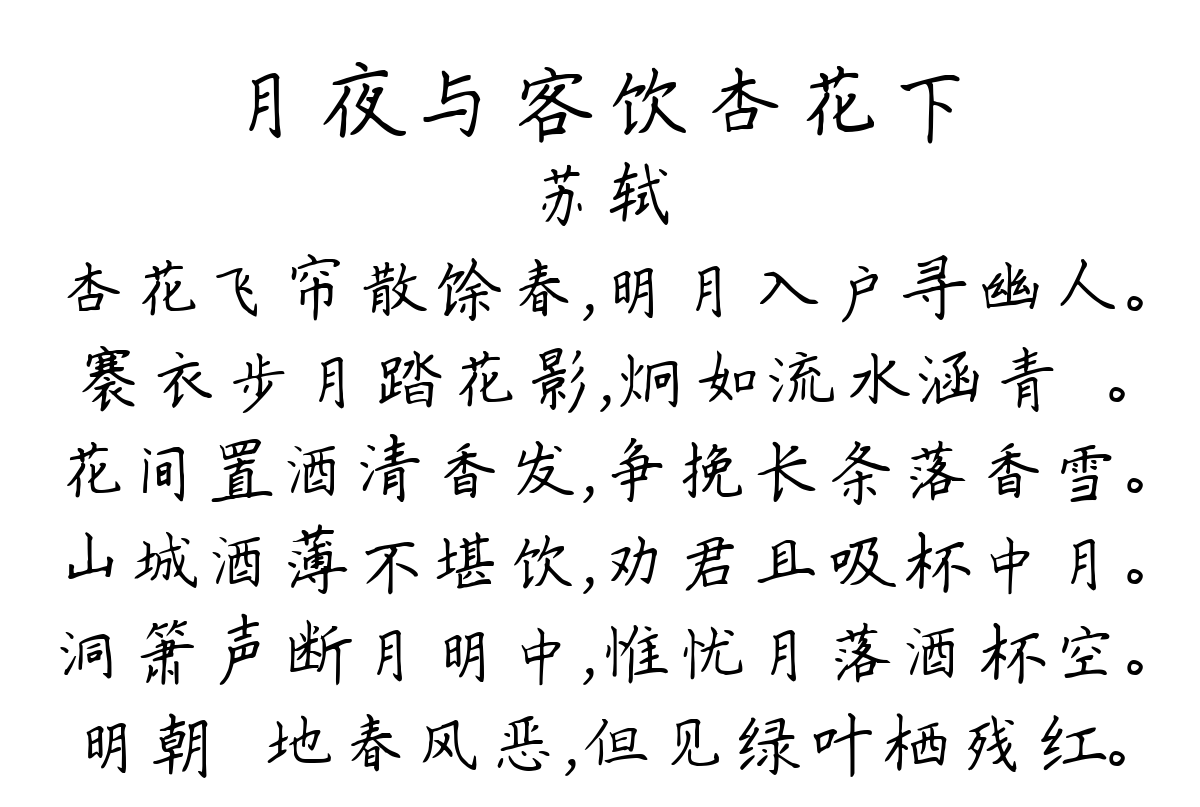 月夜与客饮杏花下
苏轼
杏花飞帘散馀春,明月入户寻幽人。
褰衣步月踏花影,炯如流水涵青 。
花间置酒清香发,争挽长条落香雪。
山城酒薄不堪饮,劝君且吸杯中月。
洞箫声断月明中,惟忧月落酒杯空。
明朝 地春风恶,但见绿叶栖残红。